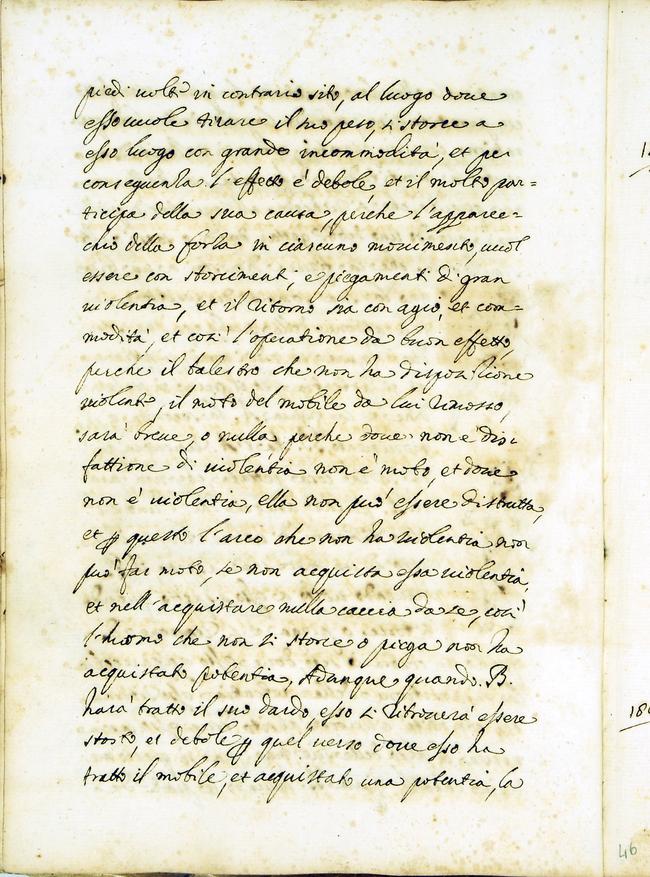 piedi uolti in contrario sito, al luogo doue
esso uuole tirare il suo peso, si storce a
esso luogo con grande incommodità, et per
conseguenza l'effetto è debole, et il molto par=
ticipa della sua causa, perche l'apparec=
chio della forza in ciascuno mouimento, uuol
essere con storcimenti, e piegamenti di gran
uiolentia, et il ritorno sia con agio, et com=
modità, et così l'operatione da buon effetto,
perche il balestro che non ha dispositione
uiolente, il moto del mobile da lui rimosso,
sarà breue, o nulla perche doue non è dis=
fattione di uiolentia non è moto, et doue
non è uiolentia, ella non può essere distrutta,
et p questo l'arco che non ha uiolentia non
può far moto, se non acquista essa uiolentia,
et nell'acquistare nulla caccia da se, così
l'huomo che non si storce o piega non ha
acquistato potentia, Adunque quando. B.
harà tratto il suo dardo, esso si ritrouerà essere
storto, et debole p quel uerso doue esso ha
tratto il mobile, et acquistato una potentia, la
18
46